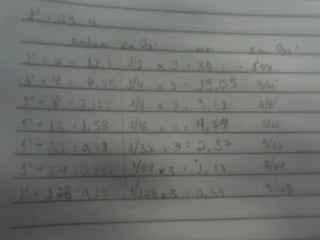 1" = 25,4
em mm
1" ÷ 2 = 12,7 1/2 x 3 = 38,1
1" ÷ 4 = 1/4 x 3 = 19,05 3/4"
1" ÷ 8 = 3,17 1/8 x 3 = 9,51 3/8"
1" ÷ 16 = 1,58 1/16 x 3 = 3/16
1" ÷ 32 = 0,79 1/32 x 3 = 2,37 3/32
1" ÷ 64 = 1/64 x 3 = 1,17 3/64
1" ÷ 128 = 0,19 1/128 x 3 = 0,59 3/128